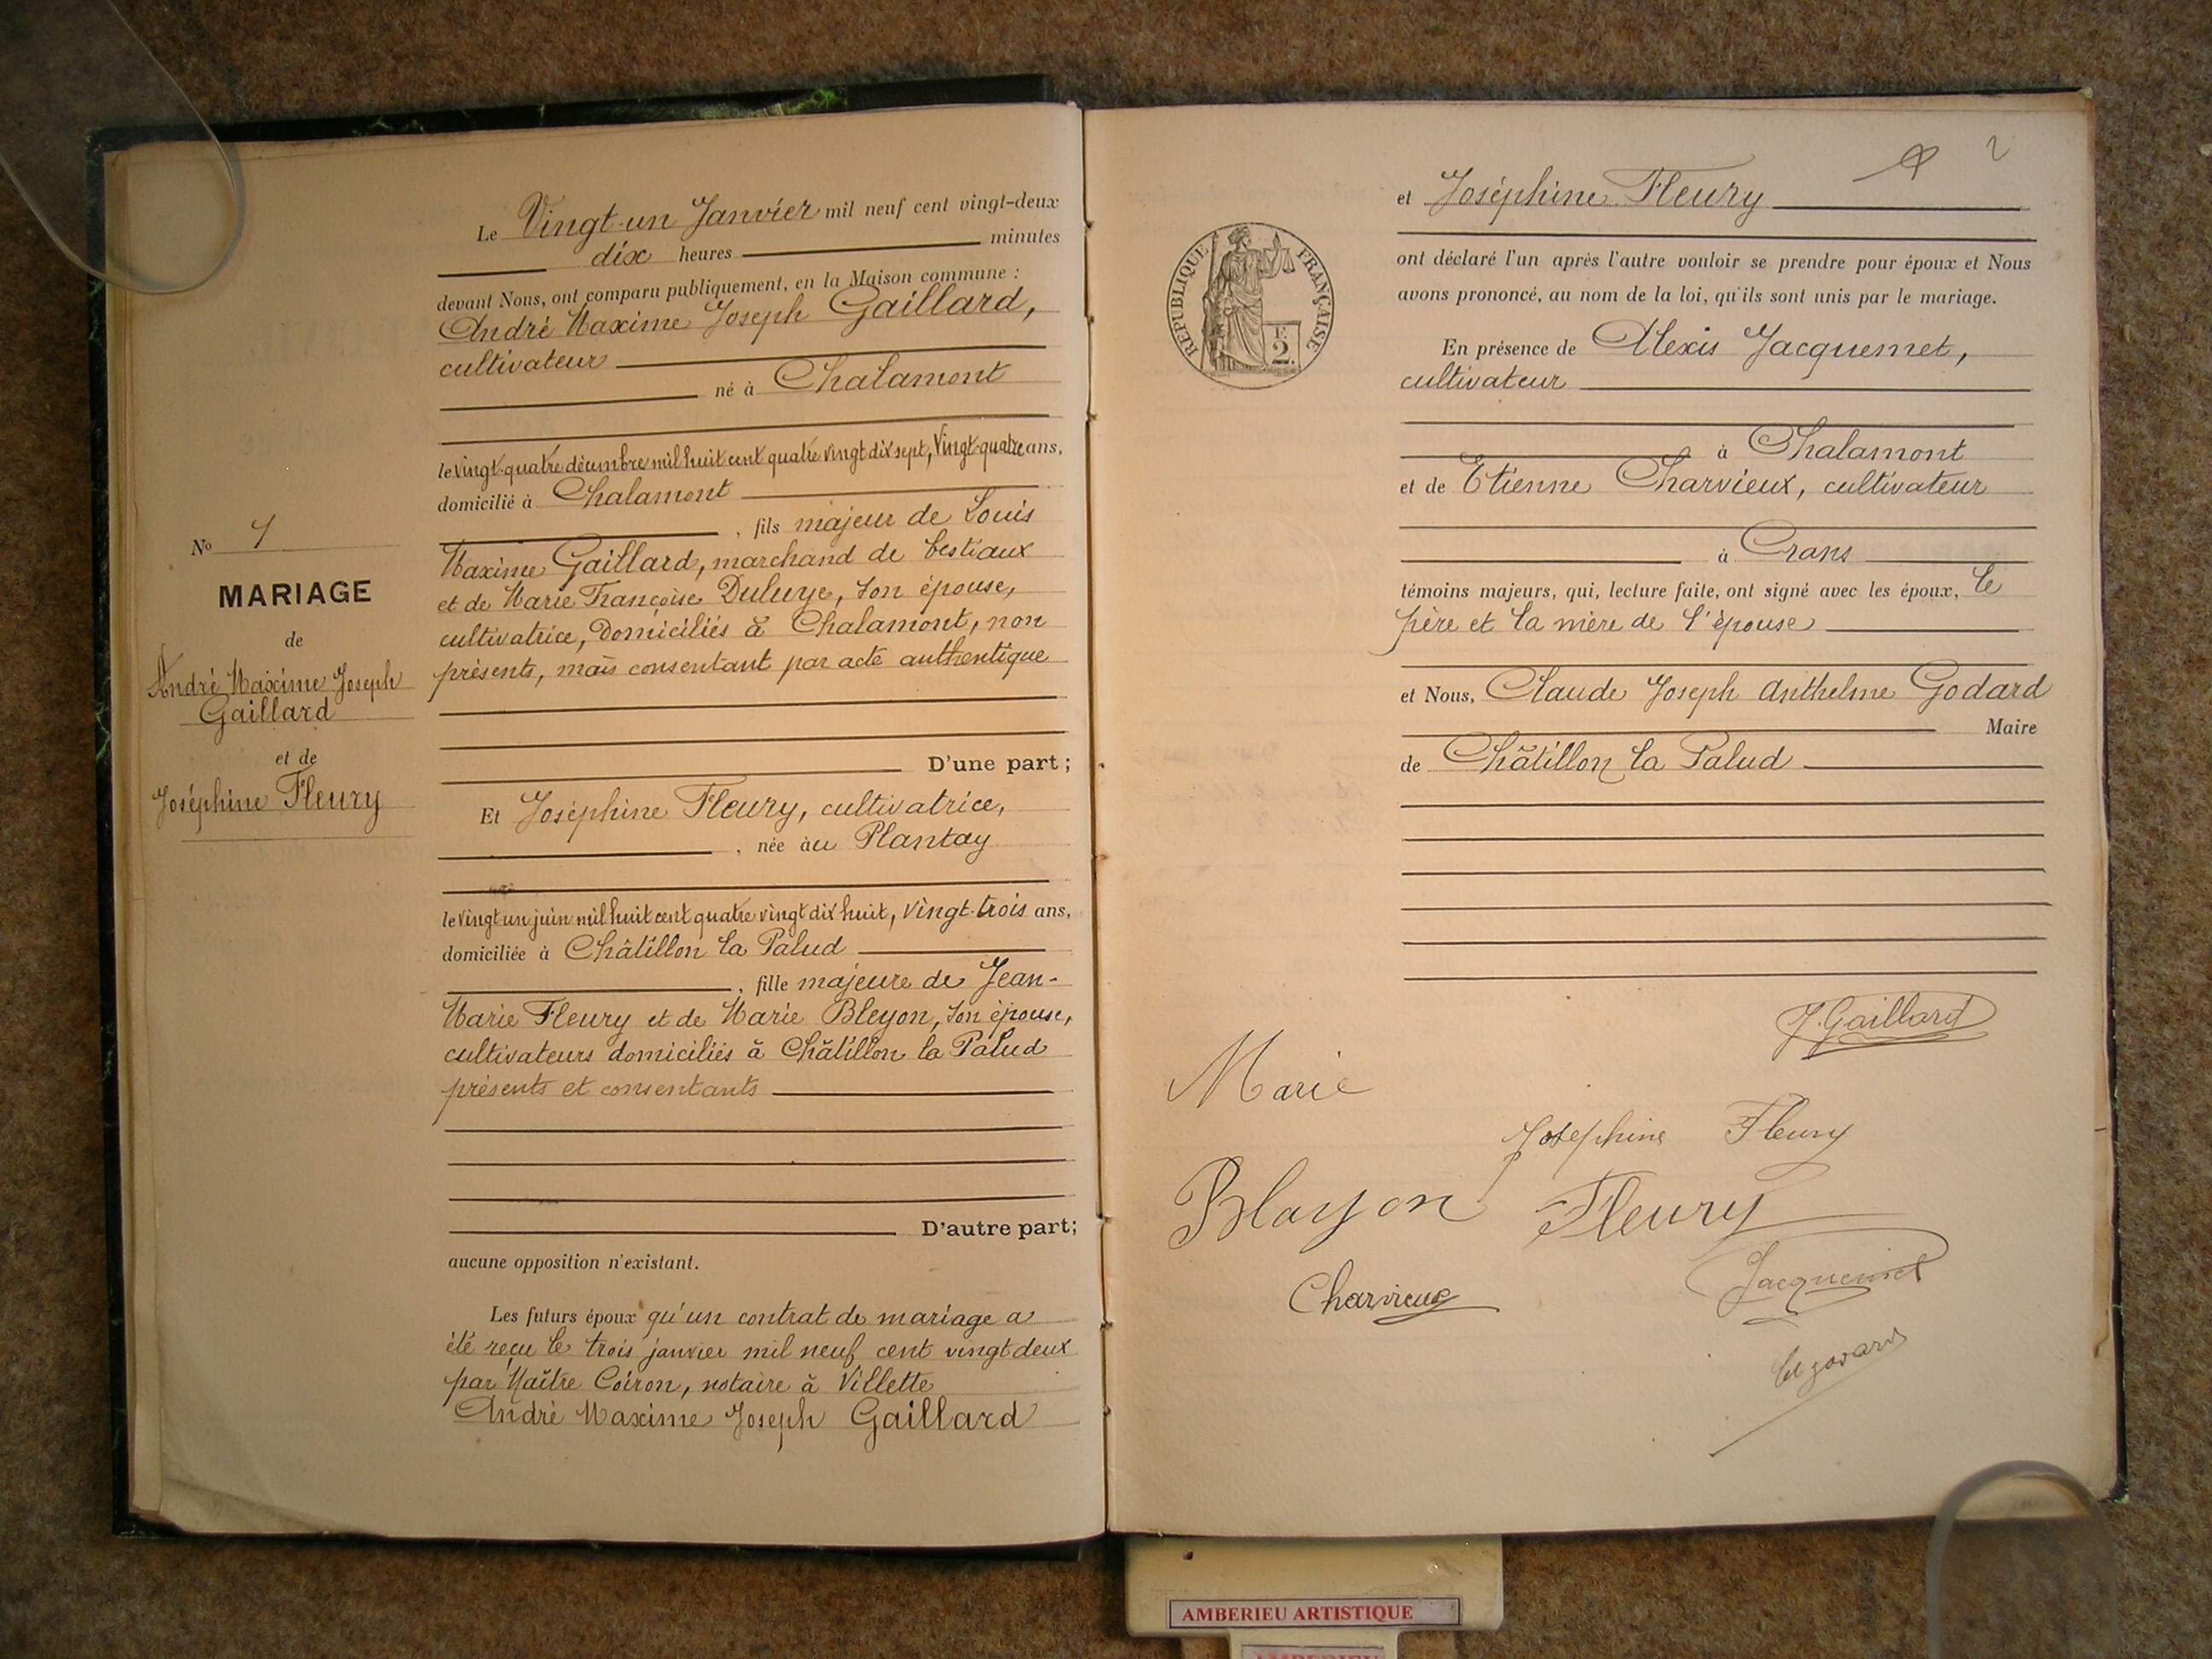 Le Vingt-un Janvier mil neuf cent vingt-deux
dix heures minutes
devant Nous, ont comparu publiquement, en la Maison commune :
André Maxime Joseph Gaillard,
cultivateur
né à Chalamont
le vingt-quatre décembre mil huit cent quatre vingt dix sept, Vingt-quatre ans,
domicilié à Chalamont
, fils majeur de Louis
Maxime Gaillard, marchand de bestiaux
et de Marie Françoise Duluye, son épouse,
cultivatrice, domiciliés à Chalamont, non
présents, mais consentant par acte authentique
D'une part ;
Et Joséphine Fleury, cultivatrice,
, née au Plantay
le vingt un juin mil huit cent quatre vingt dix huit, vingt-trois ans,
domiciliée à Châtillon la Palud
, fille majeure de Jean-
Marie Fleury et de Marie Bleyon, son épouse,
cultivateurs domiciliés à Châtillon la Palud
présents et consentants
D'autre part;
aucune opposition n'existant.
Les futurs époux qu'un contrat de mariage a
été reçu le trois janvier mil neuf cent vingt deux
par Maître Coiron, notaire à Villette
André Maxime Joseph Gaillard
No 1
MARIAGE
de
André Maxime Joseph
Gaillard
et de
Joséphine Fleury
2
et Joséphine Fleury
RÉPUBLIQUE FRANÇAISE
2
ont déclaré l'un après l'autre vouloir se prendre pour époux et Nous
avons prononcé, au nom de la loi, qu'ils sont unis par le mariage.
En présence de Alexis Jacquemet,
cultivateur
à Chalamont
et de Etienne Charvieux, cultivateur
à Crans
témoins majeurs, qui, lecture faite, ont signé avec les époux, le
père et la mère de l'épouse
et Nous, Claude Joseph Anthelme Godard
Maire
de Châtillon la Palud
J. Gaillard
Marie
Joséphine Fleury
Blayon Fleury
Charvieux
Jacquemet
AMBERIEU ARTISTIQUE
AMBERIEU